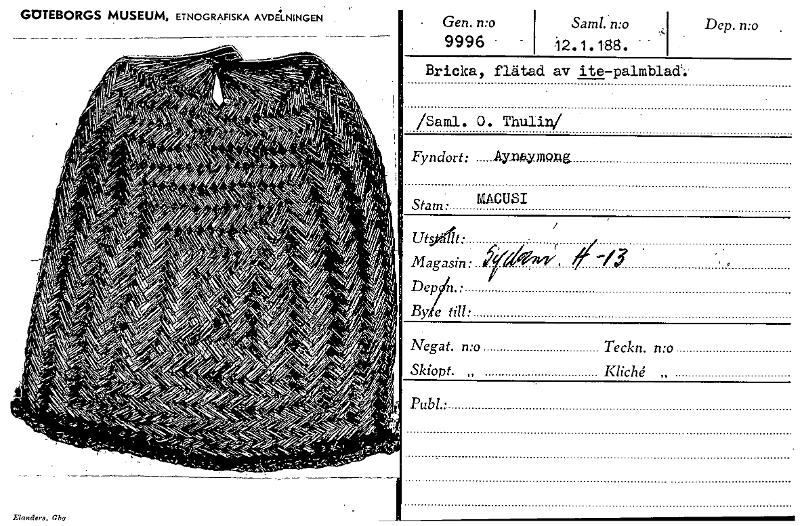 GÖTEBORGS MUSEUM, ETNOGRAFISKA AVDELNINGEN
Gen. n:o Saml. n:o Dep. n:o
9996 12.1.188.
Bricka, flätad av ite-palmblad.
/Saml. O. Thulin/
Fyndort: Aynaymong
Stam: MACUSI
Utställt:
Magasin: Sydam. H-13
Depon.:
Byte till:
Negat. n:o Teckn. n:o
Skiopt. „ Kliché „
Publ.:
Elanders, Gbg